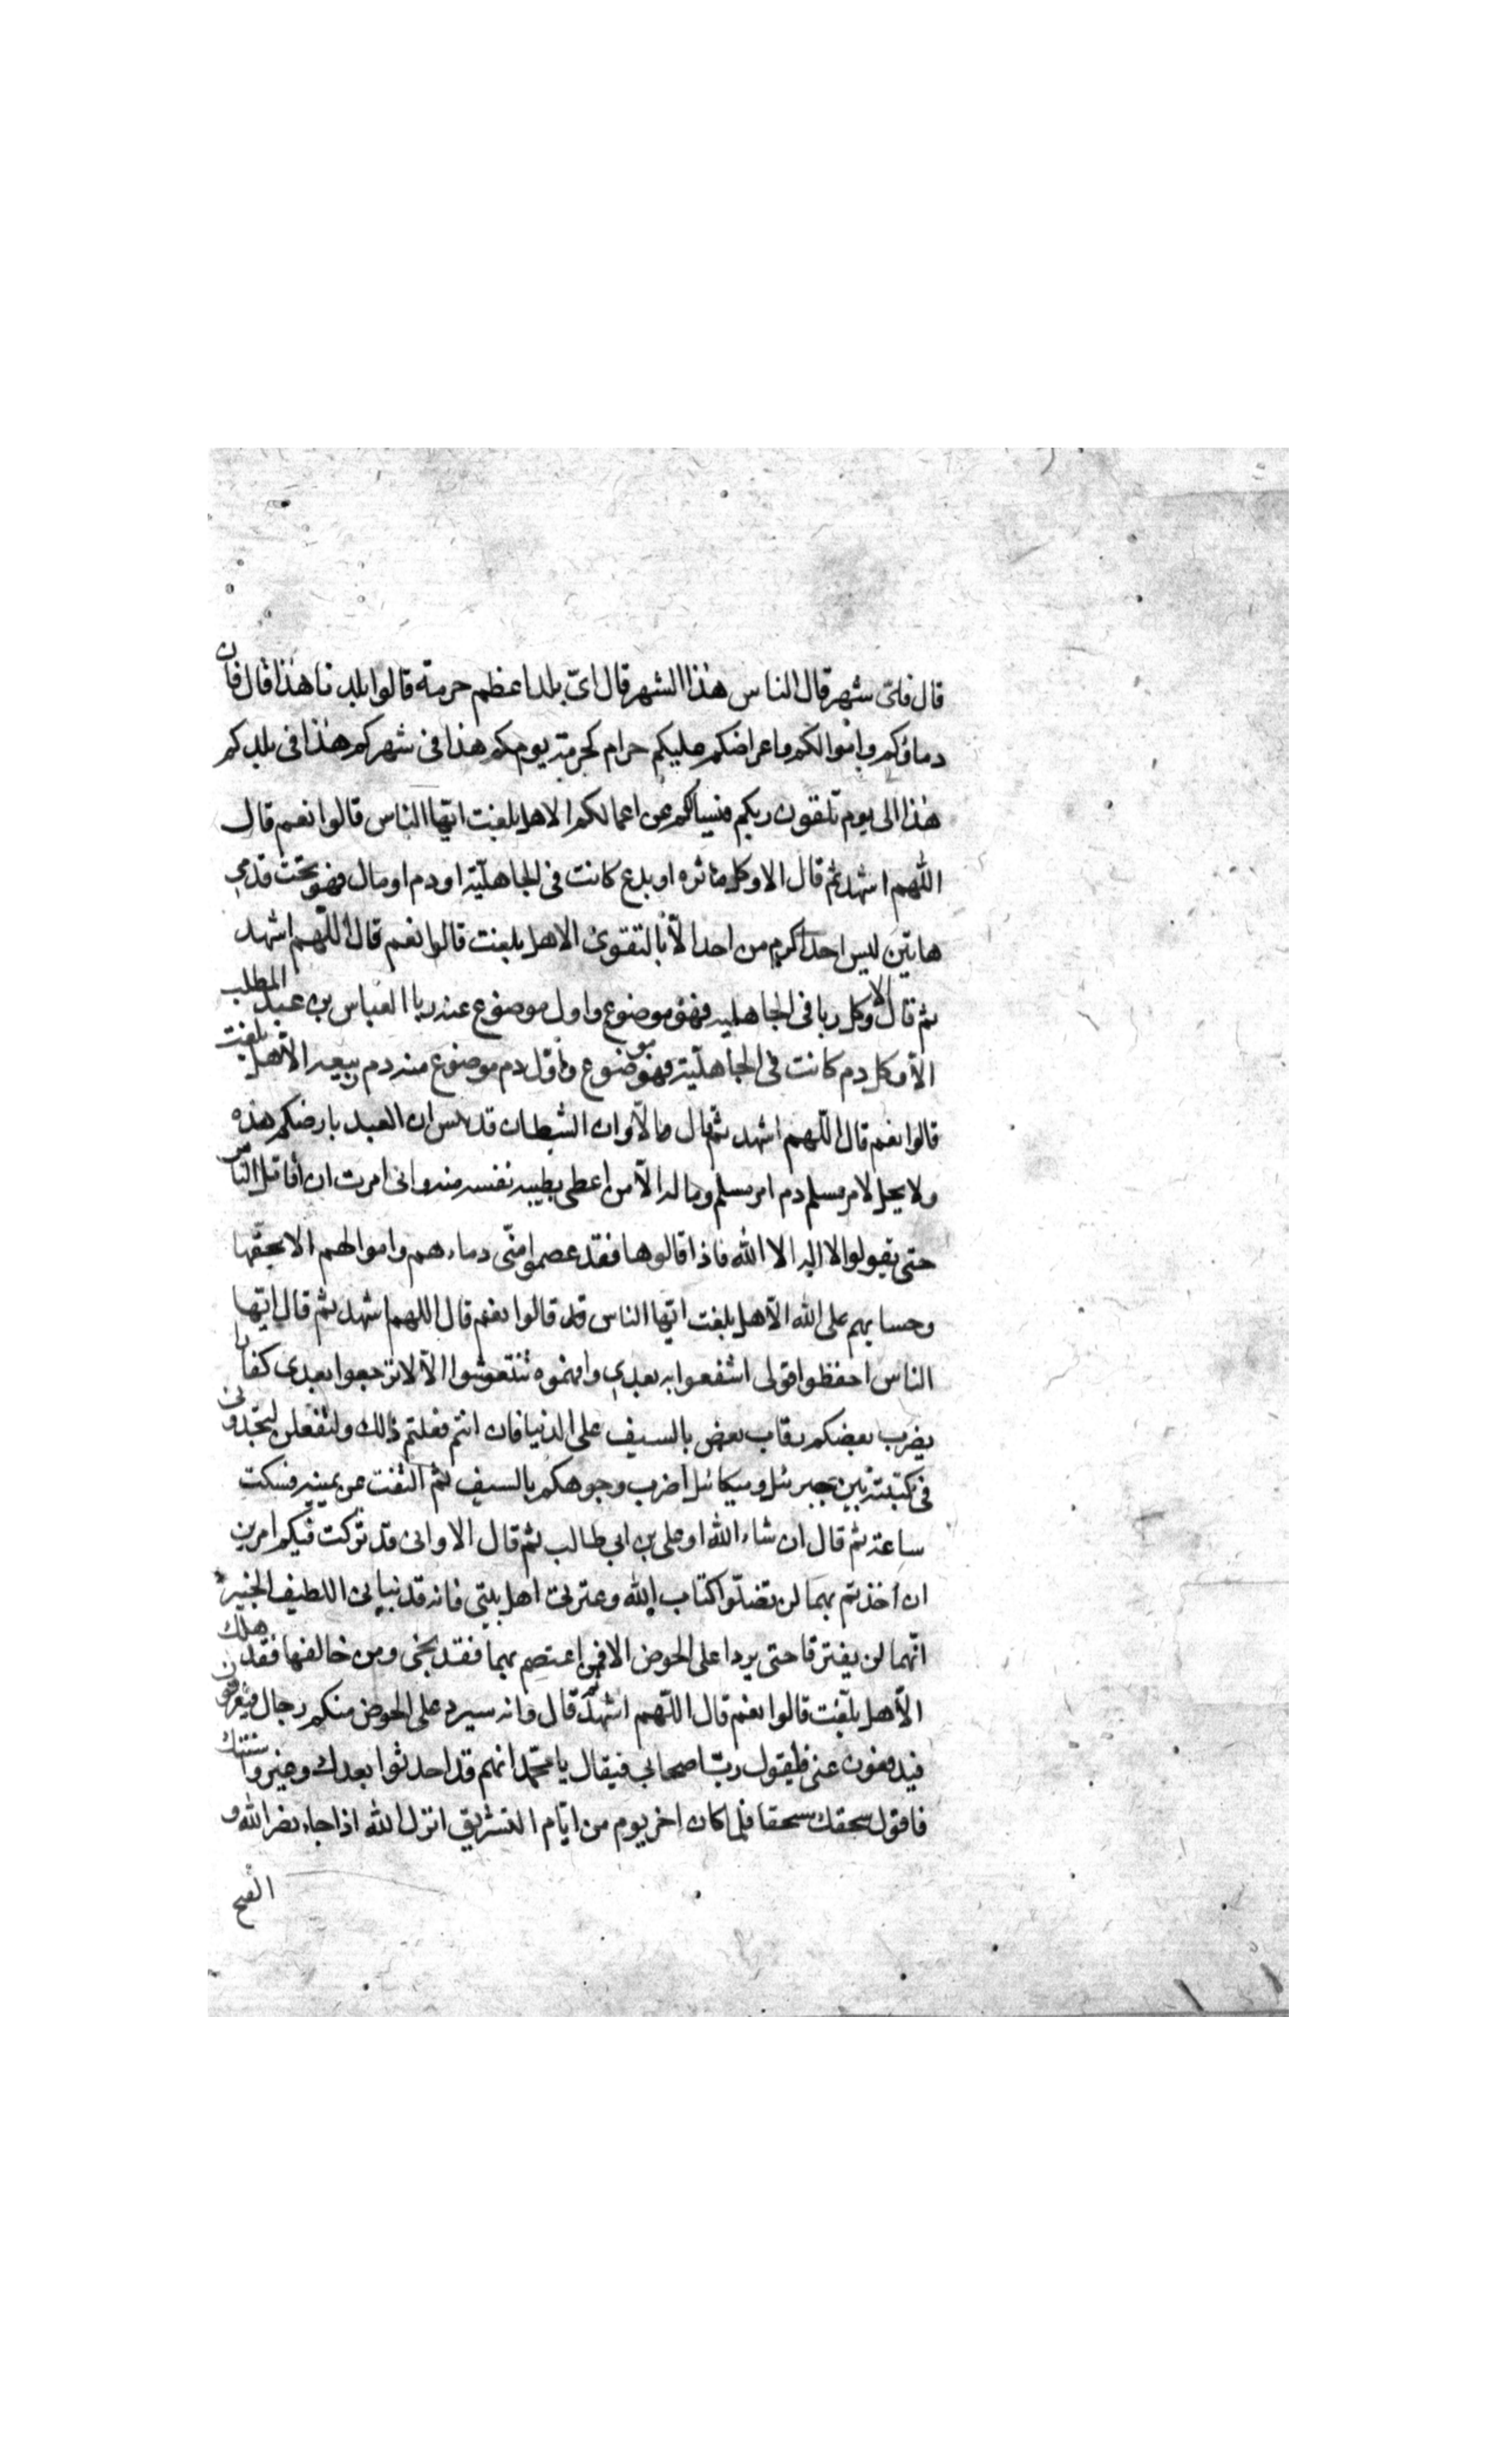 قال فاىّ شهر قال الناس هذا الشهر قال اىّ بلد اعظم حرمة قالوا بلدنا هذا قال فان
دماؤكم واموالكم واعراضكم عليكم حرام كحرمة يومكم هذا فى شهركم هذا فى بلدكم
هذا الى يوم تلقون ربكم فيسألكم عن اعمالكم الا هل بلغت ايّها الناس قالوا نعم قال
اللّهم اشهد ثم قال الا وكل ماثره او بدع كانت فى الجاهليّة او دم او مال فهو تحت قدمى
هاتين ليس احد اكرم من احد الّا بالتقوى الا هل بلغت قالوا نعم قال اللّهم اشهد
ثم قال الا وكل ربا فى الجاهليه فهو موضوع واول موضوع عنه ربا العباس بن عبد المطلب
الا وكل دم كانت فى الجاهليّة فهو موضوع واوّل دم موضوع منه دم ربيعه الا هل بلغت
قالوا نعم قال اللّهم اشهد ثم قال الا وان الشيطان قد ان العبد بارضكم هذه
ولا يحل لامر مسلم دم امر مسلم وماله الّا من اعطى بطيبه نفسه منه وانى امرت ان اقاتل الناس
حتى يقولوا لا اله الا الله فاذا قالوها فقد عصموا منّى دماءهم واموالهم الا بحقها
وحسابهم على الله الا هل بلغت ايّها الناس قالوا نعم قال اللهم اشهد ثم قال ايّها
الناس احفظوا قولى به بعدى وافهموه تنتعشوا الا لا ترجعوا بعدى كفارا
يضرب بعضكم رقاب بعض بالسيف على الدنيا فان انتم فعلتم ذالك ولتفعلن لتجدونى
فى كتيبة بين جبرئل وميكائل اضرب وجوهكم بالسيف ثم التفت عن يمينه فسكت
ساعة ثم قال ان شاء الله او على بن ابى طالب ثم قال الا وانى قد تركت فيكم امرين
ان اخذتم بهما لن تضلّوا كتاب الله وعترتى اهل بيتى فانه قد نبانى اللطيف الخبير
انّهما لن يفترقا حتى يردا على الحوض الا فمن اعتصم بهما فقد نجى ومن خالفها فقد هلك
الا هل بلّغت قالوا نعم قال اللّهم اشهد ثم قال وانه سيرد على الحوض منكم رجال فيعرفون
فيدفعون عنى فاقول ربّ اصحابى فيقال يا محمّد انهم قد احدثوا بعدك وغيروا سنتك
فاقول سحقا سحقا فلما كان اخر يوم من ايّام التشريق انزل الله اذا جاء نصر الله و
الفتح